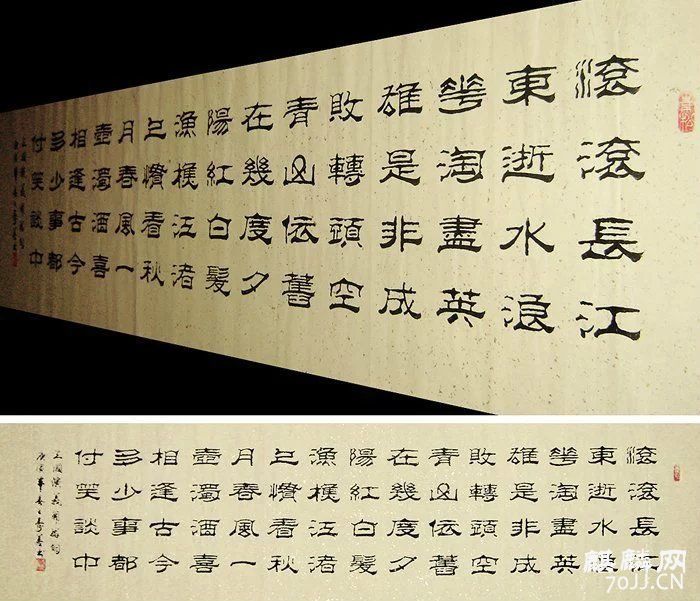 滾滾長江
東逝水浪
華淘盡英
雄是非成
敗轉頭空
青山依舊
在幾度夕
陽紅白髮
漁樵江渚
上慣看秋
月春風一
壺濁酒喜
相逢古今
多少事都
付笑談中
三國演義
滾滾長
東逝水
華淘盡英
雄是非成
敗轉頭空
青山依舊
在幾度夕
陽紅白髮
漁樵江渚
上慣看秋
月春風一
壺濁酒喜
相逢古今
多少事都
付笑談中
三國演義
麒麟网
70JJ.CN